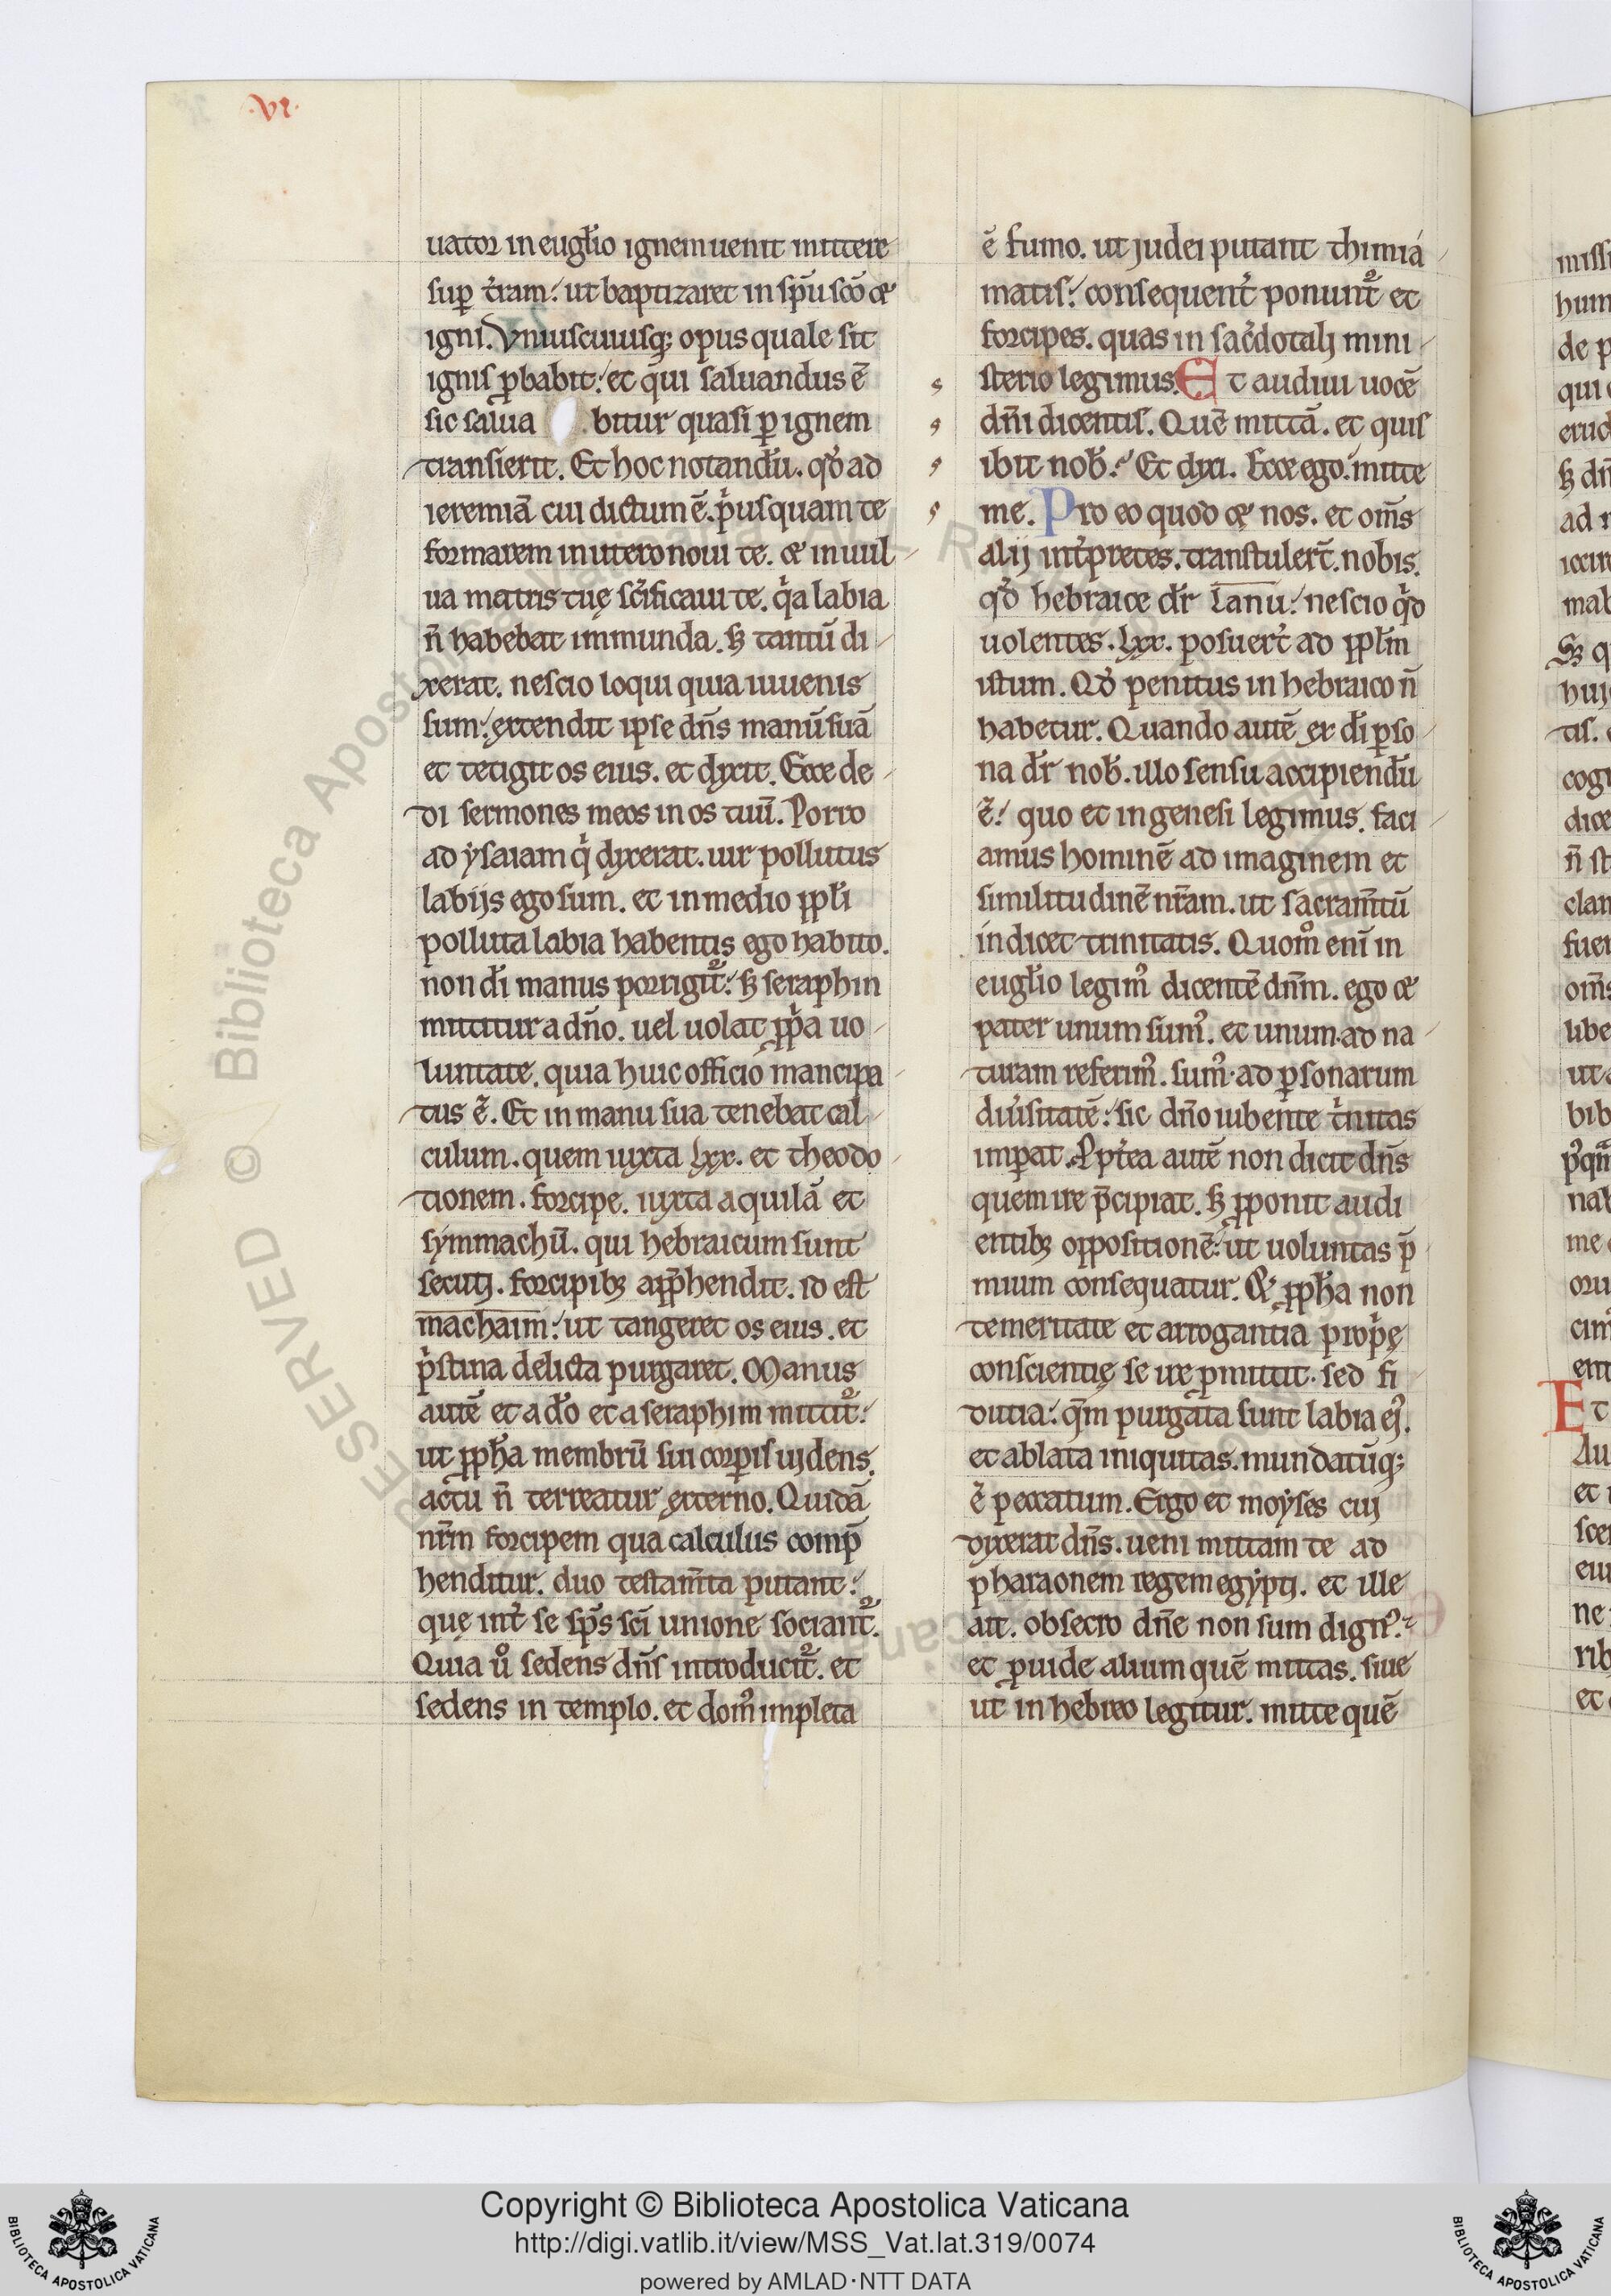 .VI.
uator in eugl̄io ignem uenit mittere
sup t̄ram. ut baptizaret in sp̄u sc̄o et
igni. Vniuscuiusq; opus quale sit
ignis p̱babit. et qui saluandus ē
sic salua bitur quasi p̱ ignem
transierit. Et hoc notandū. qd̄ ad
ieremiā cui dictum ē. p̓usquam te
formarem in utero noui te. et in uul
ua matris tuę sc̄ificaui te. q̓a labia
n̄ habebat immunda. sꝫ tantū di
xerat. nescio loqui quia iuuenis
sum. extendit ipse dn̄s manū suā
et tetigit os eius. et dyxit. Ecce de
di sermones meos in os tuū. Porro
ad ysaiam q̓ dyxerat. uir pollutus
labijs ego sum. et in medio ppl̄i
polluta labia habentis ego habito.
non dī manus porrigit᷑. sꝫ seraphin
mittitur a dn̄o. uel uolat pp̓a uo
luntate. quia huic officio mancipa
tus ē. Et in manu sua tenebat cal
culum. quem iuxta lxx. et theodo
tionem. forcipe. iuxta aquilā et
symmachū. qui hebraicum sunt
secutj. forcipibꝫ app̄hendit. id est
machaim. ut tangeret os eius. et
p̓stina delicta purgaret. Manus
autē et a dō et a seraphim mittit᷑.
ut pph̄a membrū sui corp̱is uidens.
actu n̄ terreatur externo. Quidā
nr̄m forcipem qua calculus comp̄
henditur. duo testam̄ta putant.
quę int̓ se sp̄s sc̄i unione sociant᷑.
Quia u̓o sedens dn̄s introducit᷑. et
sedens in templo. et domꝰ impleta
ē fumo. ut judei putant thimia
matis. consequent̓ ponunt᷑ et
forcipes. quas in sac̓dotalj mini
sterio legimus. Et audiui uocē
dn̄i dicentis. Quē mittā. et quis
ibit nob̄. Et dyxi. Ecce ego. mitte
me. Pro eo quod et nos. et om̄s
alij int̓pretes. transtulert̄. nobis.
qd̄ hebraice dr̄ Lanu. nescio q̓d
uolentes. lxx. posuert̄ ad ppl̄m
istum. Qd̄ penitus in hebraico n̄
habetur. Quando autē ex dī p̱so
na dr̄ nob̄. illo sensu accipiendū
ē. quo et in genesi legimus. faci
amus hominē ad imaginem et
similitudinē nr̄am. ut sacram̄tū
indicet trinitatis. Quom̊ enī in
eugl̄io legimꝰ dicentē dn̄m. ego et
pater unum sumꝰ. et unum ad na
turam referimꝰ. sumꝰ ad p̱sonarum
diu̓sitatē. sic dn̄o iubente t̓nitas
imp̱at. Ppt̓ea autē non dicit dn̄s
quem ire p̄cipiat. sꝫ p̱ponit audi
entibꝫ oppositionē. ut uoluntas p̄
mium consequatur. Et pph̄a non
temeritate et arrogantia prop̓ę
conscientię se ire p̱mittit. sed fi
ducia. qm̄ purgata sunt labia eiꝰ.
et ablata iniquitas. mundatūq;
ē peccatum. Ergo et moyses cuj
dyxerat dn̄s. ueni mittam te ad
pharaonem regem egyptj. et ille
ait. obsecro dn̄e non sum dignꝰ.
et p̱uide alium quē mittas. siue
ut in hebreo legitur. mitte quē
Copyright © Biblioteca Apostolica Vaticana
http://digi.vatlib.it/view/MSS_Vat.lat.319/0074
powered by AMLAD·NTT DATA
BIBLIOTECA APOSTOLICA VATICANA
BIBLIOTECA APOSTOLICA VATICANA